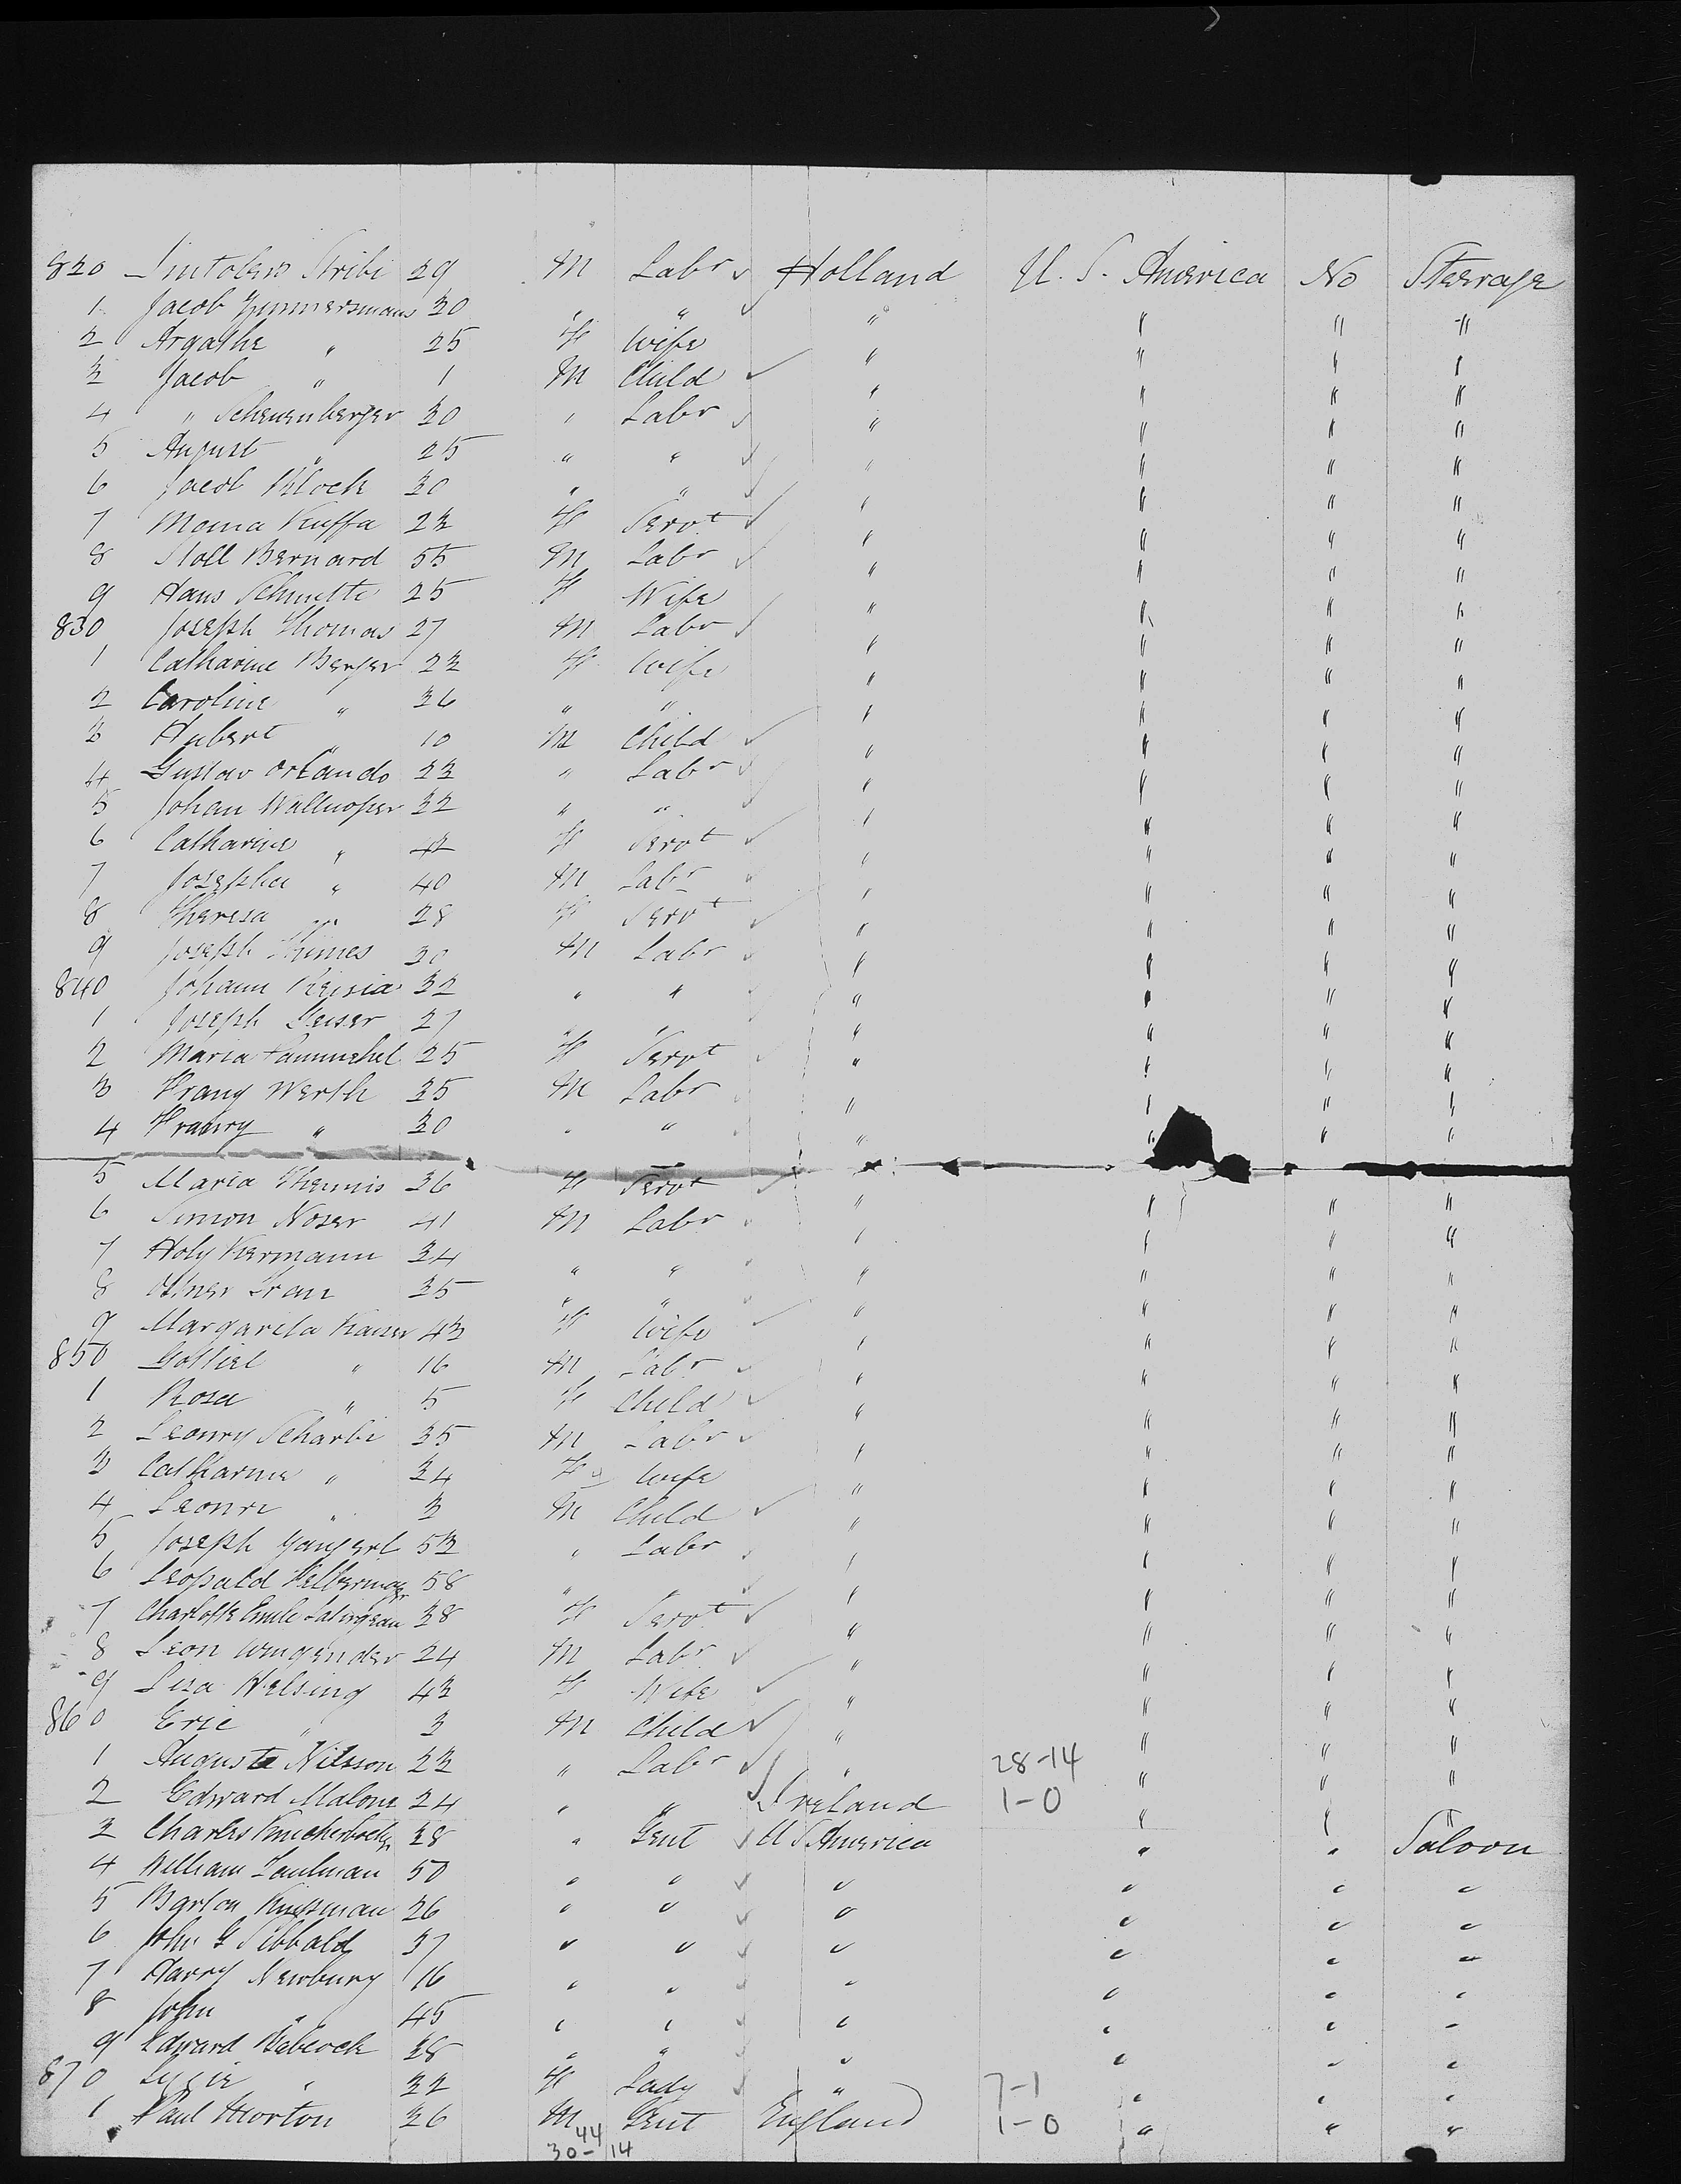 820 Jintolens Stribi 29 M Labr Holland U. S. America No Steerage
1 Jacob Zimmersmans 30 " " " " " "
2 Argathe " 25 F Wife " " " "
3 Jacob " 1 M Child " " " "
4 " Scheuenberger 30 " Labr " " " "
5 August " 25 " " " " " "
6 Jacob Klock 30 " " " " " "
7 Moma Kuffa 23 F Servt " " " "
8 Stoll Bernard 55 M Labr " " " "
9 Hans Schmette 25 F Wife " " " "
830 Joseph Thomas 27 M Labr " " " "
1 Catharine Berger 23 F Wife " " " "
2 Caroline " 36 " " " " " "
3 Hubert " 10 M Child " " " "
4 Gustav Orlando 33 " Labr " " " "
5 Johan Wallnoper 32 " " " " " "
6 Catharine " 42 F Servt " " " "
7 Josepha " 40 M Labr " " " "
8 Theresa " 28 F Servt " " " "
9 Joseph Thimes 30 M Labr " " " "
840 Johann Keisia 32 " " " " " "
1 Joseph Leiser 27 " " " " " "
2 Maria 25 F Servt " " " "
3 Franz Werth 35 M Labr " " " "
4 " 30 " " " " " "
5 Maria Themis 36 F Servt " " " "
6 Simon Noser 41 M Labr " " " "
7 Holy Kermann 34 " " " " " "
8 Ottner Fran 35 " " " " " "
9 Margarita Kaiser 43 F Wife " " " "
850 Gottliel " 16 M Labr " " " "
1 Rosa " 5 F Child " " " "
2 Leonry Scharbi 35 M Labr " " " "
3 Catharina " 34 F Wife " " " "
4 Leonri " 3 M Child " " " "
5 Joseph Gangerl 53 " Labr " " " "
6 Leopald Felbermayer 58 " " " " "
7 Charlotte Emile 38 F Servt " " " "
8 Leon Wingender 24 M Labr " " " "
9 Lisa Helsing 43 F Wife " " " "
860 Eric " 3 M Child " " " "
1 Augusta Nilsson 23 " Labr " 28-14 " " "
2 Edward Malone 24 " " Ireland 1-0 " " "
3 Charles Knickerbocker 38 " Gent U S America " " Saloon
4 William Laulman 50 " " " " " "
5 Barton Kingsman 26 " " " " " "
6 John G Sibbald 37 " " " " " "
7 Harry Newbury 16 " " " " " "
8 John " 45 " " " " " "
9 Edward Babcock 38 " " " " " "
870 Lizzie " 32 F Lady " 7-1 " " "
1 Paul Horton 36 M Gent England 1-0 " " "
44
30-14